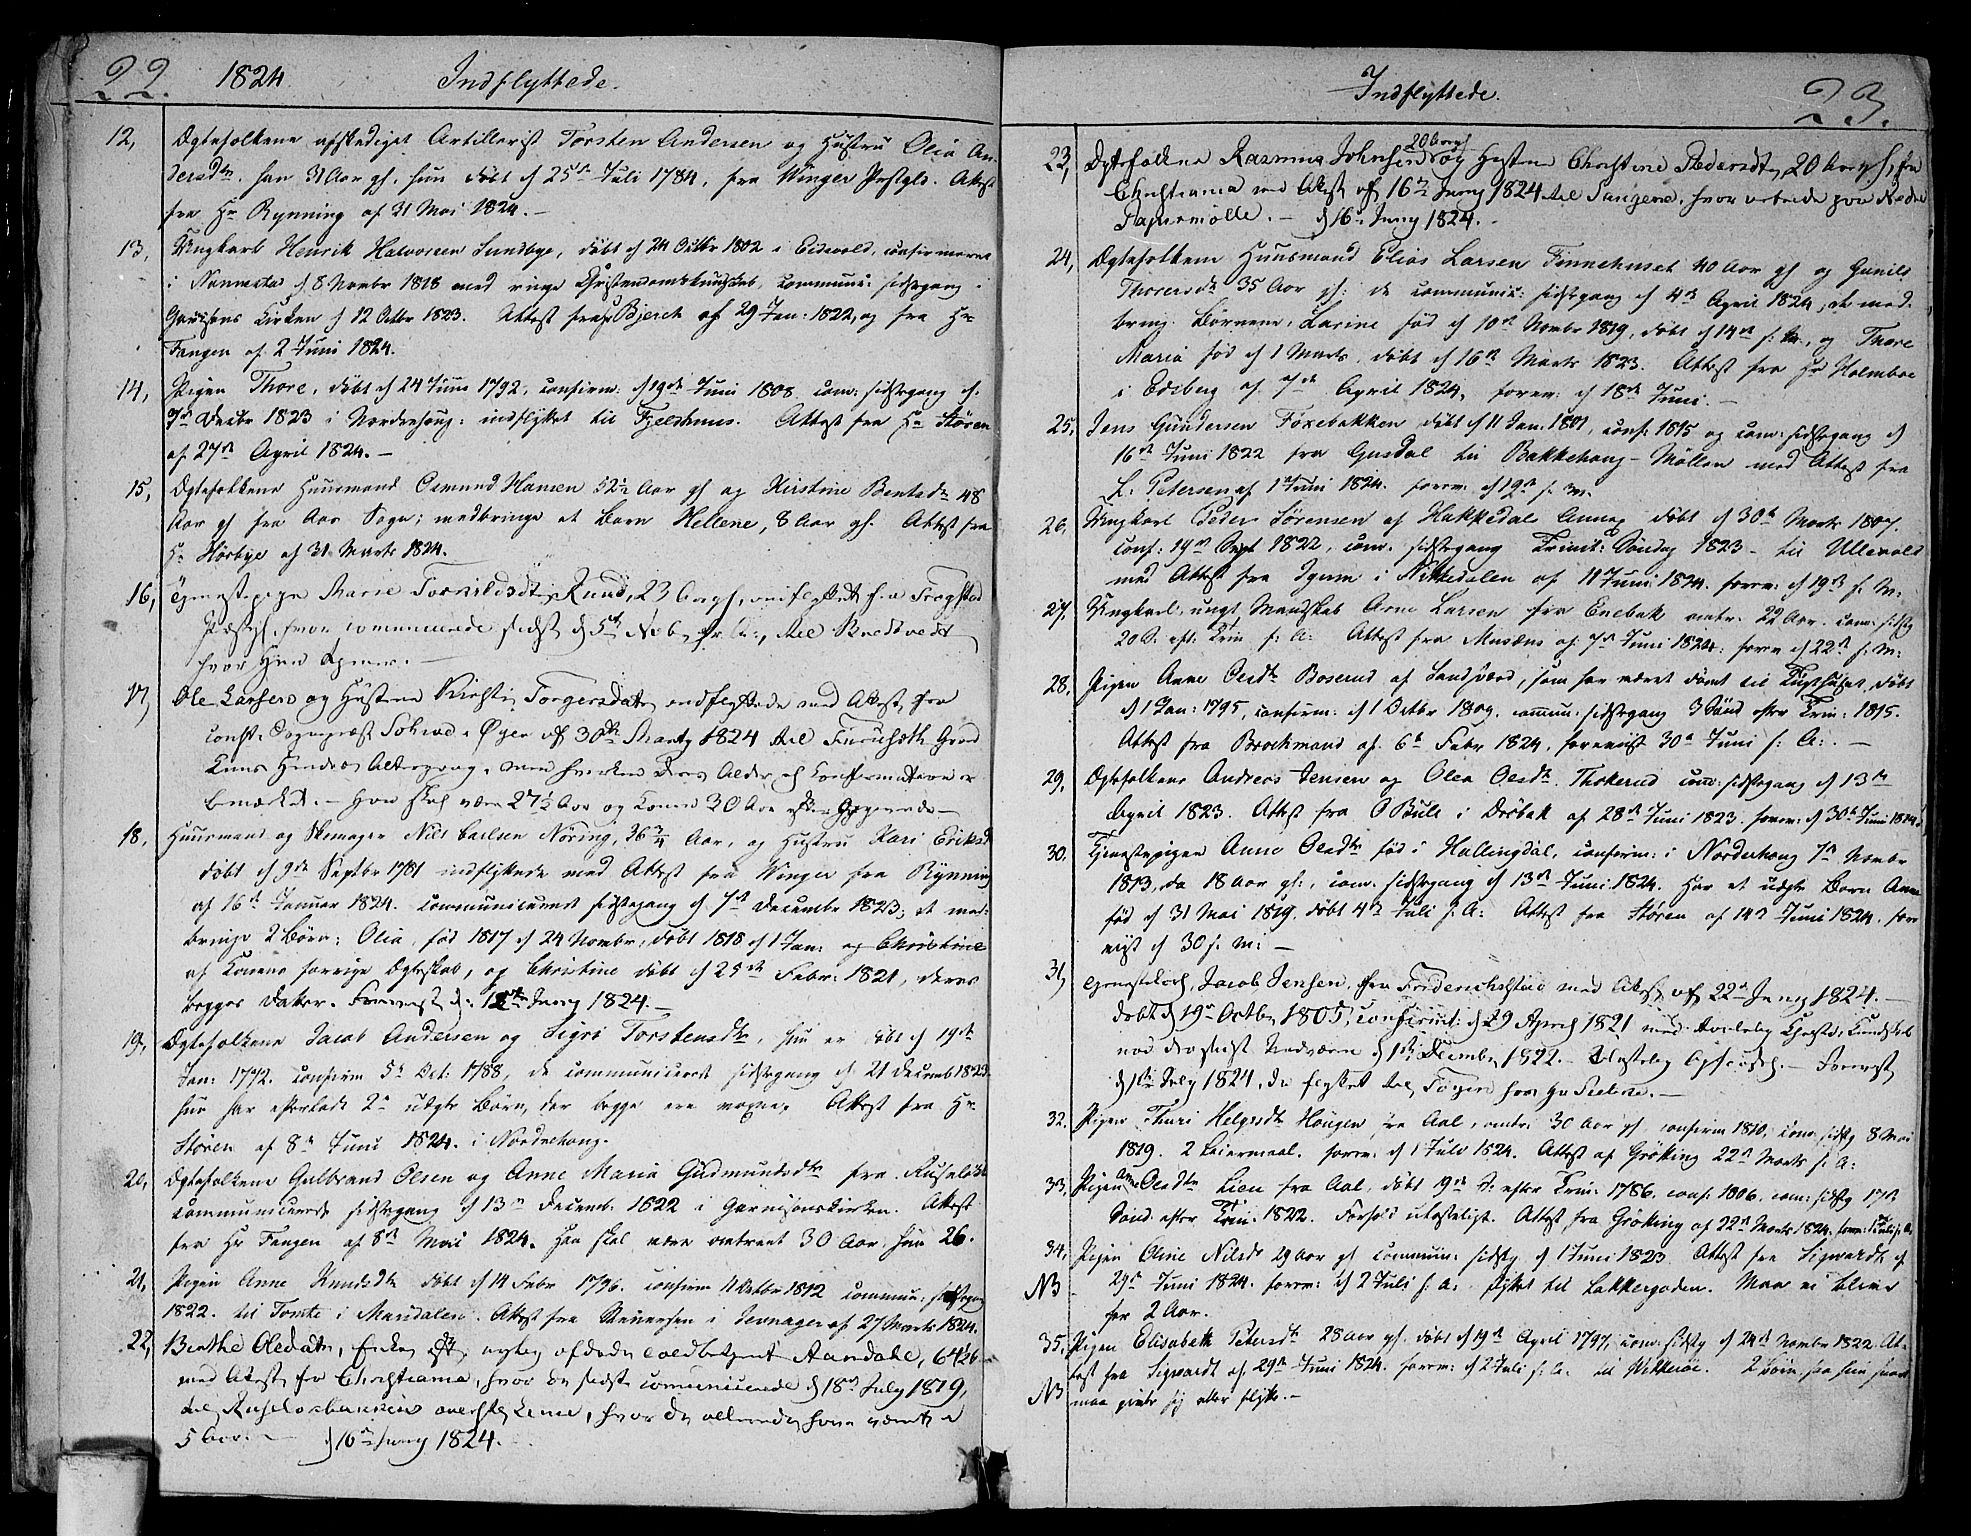 22. 1824 Indflyttede.
12, Ægtefolkene afskediget Artillerist Torsten Andersen og Hustru Olia An-
dersdtr. han 31 Aar gl, hun døbt d 25de Juli 1784, fra Winger Præstgld. Attest
fra Hr Rynning af 31 Mai 1824. –
13, Ungkarl Henrik Halvorsen Sundbye, døbt d 24 Octbr 1802 i Eidsvold, confirmeret
i Nannestad d 8 Novbr 1818 med ringe Christendomskundskab, communic: sidstegang
Garnisons Kirken d 12 Octbr 1823. Attest fra Bjerck af 29 Jan: 1822, og fra Hr
Fangen af 2 Juni 1824.
14, Pigen Thore, døbt d 24 Juni 1792, confirm. d 19de Juni 1808 com: sidstegang d.
7de Decbr 1823 i Norderhoug: indflyttet til Fjeldhuus. Attest fra Hr Støren
af 27de April 1824. –
15, Ægtefolkene Huusmand Osmund Hansen 52½ Aar gl og Kirstine Bentsdtr 48
Aar gl fra Aas Sogn; medbringe et Barn Hellene, 8 Aar gl. Attest fra
Hr Hørbye af 31 Marts 1824.
16, Tjenestepige Marie Tornildsdtr Ruud, 23 Aar gl, indflyttet fra Trøgstad
Præstgl. hvor communicerede sidst d 5te Novb f. A., til Bredtvedt
hvor hun tjener. –
17, Ole Larsen og Hustrue Kirsti Torgersdatr indflyttede med Attest fra
const. Sognepræst i Øyer af 30de Marty 1824 til Furuseth Grund
Altergang, men hverken Deres Alder eller Confirmation er
bemærket. – Han skal være 27½ Aar og Konen 30 Aar efter Opgivende –
18, Huusmand og Skomager Nils Carlsen Nøring, 36¾ Aar, og Hustru Kari Eriksd
døbt d 9de Septbr 1781 indflyttede med Attest fra Winger fra Rynning
af 16de Januar 1824. communicerede sidstegang d 7de Decembr 1823; de med-
bringe 2 Børn: Olia, fød 1817 d 24 Novbr, døbt 1818 d 1 Jan: og Christine
af Konens forrige Ægteskab, og Christine døbt d 25de Febr: 1821, deres
begges Datter. Foreviist d: 12te Juny 1824. –
19, Ægtefolkene Jacob Andersen og Sigri Torstensdtr, hun er døbt d 19de
Jan: 1772. confirm 5te Oct: 1788, de communicerede sidstegang d 21 Decemb 1823
hun har efterladt 2de uægte Børn, der begge ere voxne. Attest fra Hr
Støren af 8de Juni 1824. i Norderhoug.
20, Ægtefolkene Gulbrand Olsen og Anne Maria Gudmundsdtr fra
communicerede sidstegang d 13de Decemb. 1822 i Garnisonskirken. Attest
fra Hr Fangen af 8de Mai 1824. Han skal være omtrent 30 Aar hun 26.
21, Pigen Anne Knudsdtr døbt d 14 Febr 1796. confirm 11 Octbr 1812 commun: sidstegang
1822. til Tomte i Maridalen. Attest fra i Jevnager af 27 Marts 1824.
22, Berthe Olsdatr, Enke efter afdøde Aandahl, 64/26
med Attest fra Christiania, hvor de sidst communicerede d 18de July 1819,
til hvor de allerede have været i
5 Aar. – d 16de Juny 1824. –
Indflyttede. 23.
23, Ægtefolkene Rasmus Johnsen 20 Aar gl og Hustrue Christine Pedersdtr 20 Aar gl, fra
Christiania med Attest af 16de Juny 1824 til hvor arbeide paa Nedre
Papiermølle. – d 16de Juny 1824. –
24, Ægtefolkene Huusmand Elias Larsen Finnehuset 40 Aar gl og Gunild
Thorersdtr 35 Aar gl: de communic: sidstegang d 4de April 1824, de med-
bring Børnene, Larine fød d 10de Novbr 1819, døbt d 14de s: M., og Thore
Maria fød d 1 Marts, døbt d 16de Marts 1823. Attest fra Hr Holmboe
i Edsberg af 7de April 1824, forev: d 18de Juni. –
25, Jens Gundersen Foxebakken døbt d 11 Jan: 1801, conf: 1815 og com: sidstegang d
16de Juni 1822 fra Gusdal til Bakkehaug-Møllen med Attest fra
L. Petersen af 1 Juni 1824. forev: d 19de s: M.
26, Ungkarl Peder Sørensen af Hakkedals Annex døbt d 30te Marts 1807.
conf: 19de Sept 1822, com. sidstegang Trinit: Søndag 1823 – til Ullevold
med Attest fra i Nittedalen af 11 Juni 1824. forev: d 19de s: M:
27, Ungkarl, ungt Mandskab Arne Larsen fra Enebak omtr: 22 Aar. com: sidstg
20 S. eft: Trin f: A: Attest fra Musæus af 7de Juni 1824. forev d 22de s: M:
28, Pigen Anne Olsdtr Boserud af Sandsværd, som har været dømt til Tugthuset, døbt
d 1 Jan: 1795, confirm: d 1 Octbr 1809. commun: sidstegang 3 Sønd efter Trin: 1815.
Attest fra Brochmand af 6te Febr 1824. foreviist 30te Juni s: A: –
29, Ægtefolkene Andreas Jensen og Olea Olsdtr Thokerud com: sidstegang d 13de
April 1823. Attest fra O Bull i Drøbak af 28de Juni 1823. forev: d 30te Juni 1824.
30. Tjenestepigen Anne Olsdtr fød i Hallingdal, confirm: i Norderhoug 7de Novbr
1813, da 18 Aar gl:, com: sidstegang d 13de Juni 1824. Har et uægte Barn Anne
fød d 31 Mai 1819, døbt 4de Juli s: A: Attest fra Støren af 14de Juni 1824. fore
viist d 30 s: M: –
31, Tjenestekarl, Jacob Jensen, fra Frederichsstad med Attest af 22de Juny 1824. –
døbt d 19de Octbr 1805, confirmt: d 29 April 1821 med Christd. Kundskab
ved dito sidst Nadværen d 1ste Decembr 1822. – – Foreviist
d 1ste July 1824, da flyttet til Tøyen hos –
32. Pigen Thuri Helgesdtr Haugen fra Aal, omtr: 30 Aar gl, confirm 1810, com: sidstg 8 Mai
1819. 2 Leiermaal. forev: d 1 Juli 1824. Attest af Grøtting 22de Marts s: A:
33, Pigen Anne Olsdtr Lien fra Aal, døbt 9de S: efter Trin: 1786, conf: 1806. com: sidstg 17de
Sønd efter Trin: 1822. Forhold ulasteligt. Attest fra Grøtting af 22de Marts 1824. forev: 1 Juli s: A:
34, Pigen Oline Nilsdtr 29 Aar gl commun: sidstg d 1 Juni 1823. Attest fra Sigwardt af
NB 29de Juni 1824. forev: d 2 Juli s: A: flyttet til Lakkegaden. Maa ei blive
her 2 Aar.
35, Pigen Elisabeth Petersdtr 28 Aar gl. døbt d 19de April 1797, com: sidstg d 24de Novbr 1822. At-
test fra Sigwardt af 29de Juni 1824. forev: d 2 Juli s: A: til
NB maa give sig eller flytte. –